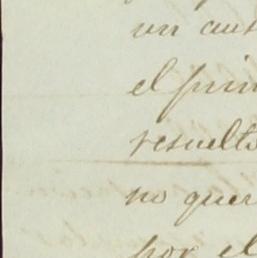 un aus
el prim
resuelto
no quer
por el